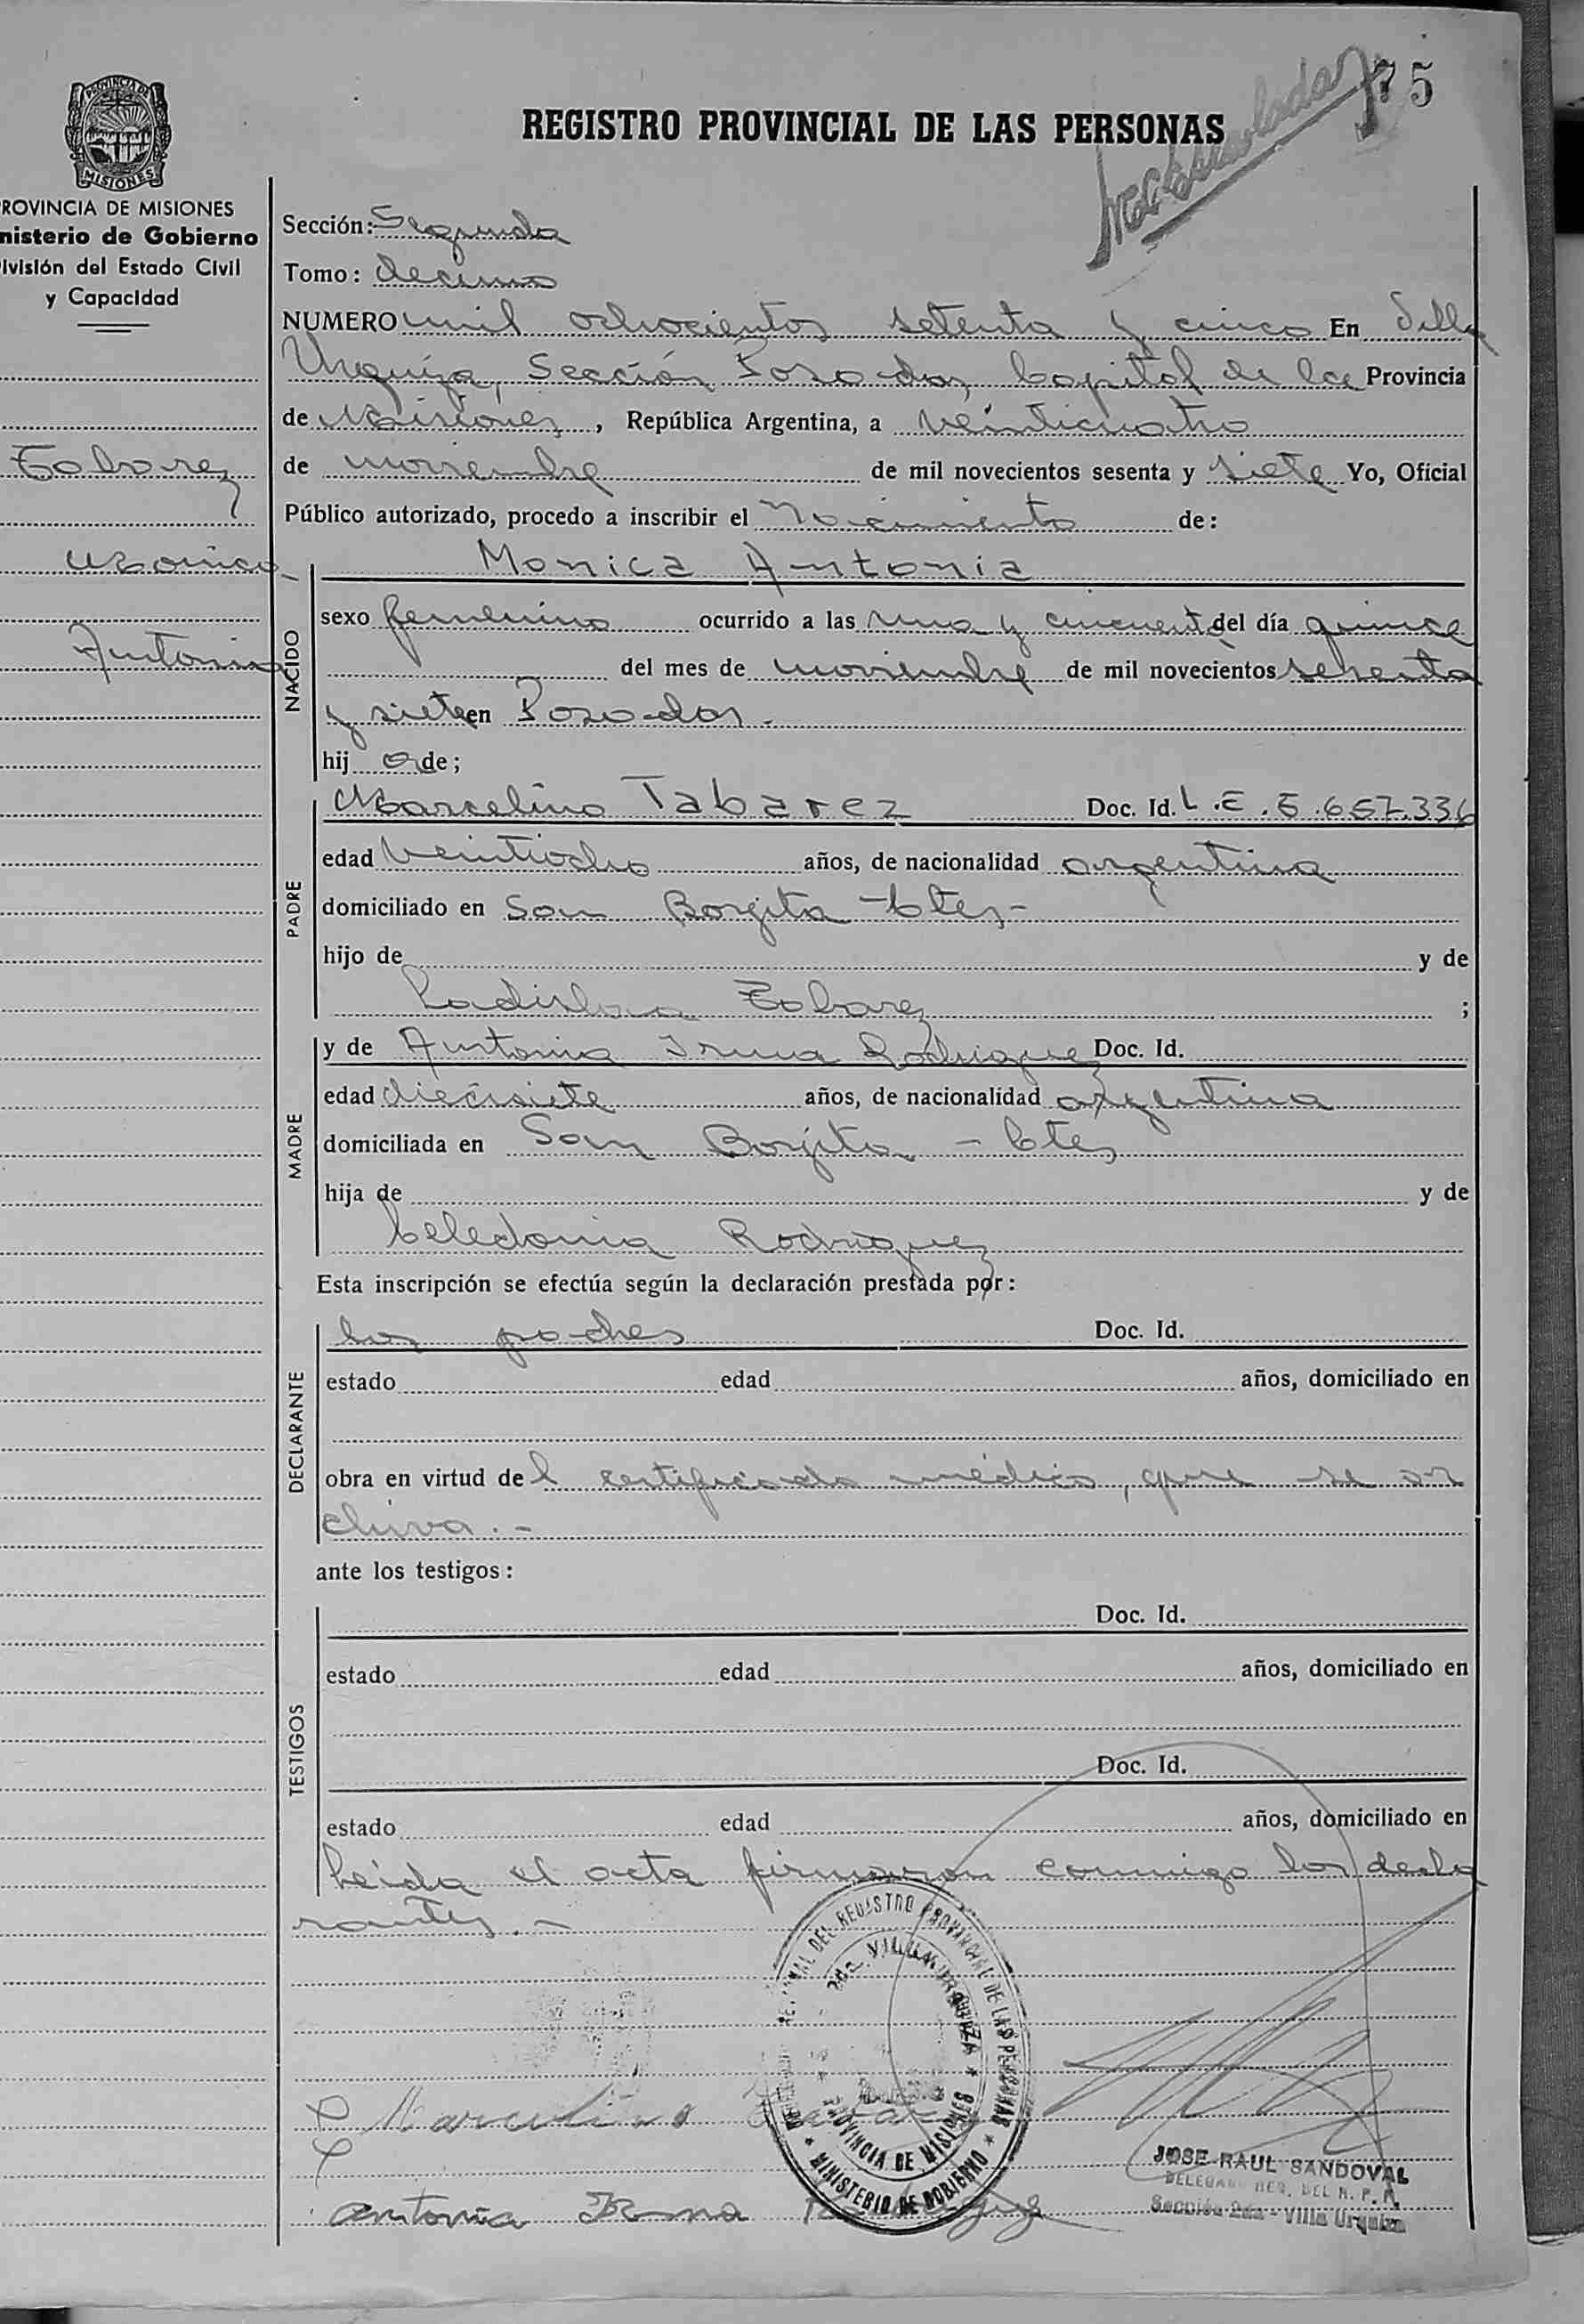 75
REGISTRO PROVINCIAL DE LAS PERSONAS
PROVINCIA DE
MISIONES
ROVINCIA DE MISIONES
nisterio de Gobierno
ivisión del Estado Civil
y Capacidad
Tabarez
Monica
Antonia
Sección: Segunda
Tomo: decimo
NUMERO mil ochocientos setenta y cinco En Villa
Urquiza, Sección Posadas, Capital de la Provincia
de Misiones, República Argentina, a veinticuatro
de noviembre de mil novecientos sesenta y siete Yo, Oficial
Público autorizado, procedo a inscribir el Nacimiento de:
Monica Antonia
NACIDO
sexo femenino ocurrido a las una y cincuenta del día quince
del mes de noviembre de mil novecientos sesenta
y siete en Posadas.
hij a de;
PADRE
Marcelino Tabarez Doc. Id. L.E. 5.657.336
edad veintiocho años, de nacionalidad argentina
domiciliado en San Borjita - Ctes -
hijo de y de
Ladislaa Tabarez ;
MADRE
y de Antonia Irma Rodriguez Doc. Id.
edad diecisiete años, de nacionalidad argentina
domiciliada en San Borjita - Ctes
hija de y de
Celedonia Rodriguez
Esta inscripción se efectúa según la declaración prestada por:
DECLARANTE
los padres Doc. Id.
estado edad años, domiciliado en
obra en virtud del certificado médico, que se ar
chiva.-
ante los testigos:
TESTIGOS
Doc. Id.
estado edad años, domiciliado en
Doc. Id.
estado edad años, domiciliado en
Leida el acta firmaron conmigo los decla
rantes.-
DEL REGISTRO PROVINCIAL DE LAS PERSONAS
2da VILLA URQUIZA
PROVINCIA DE MISIONES
* MINISTERIO DE GOBIERNO *
Marcelino
JOSE RAUL SANDOVAL
DEL R. P. P.
Sección 2da - Villa Urquiza
Antonia Irma Rodriguez